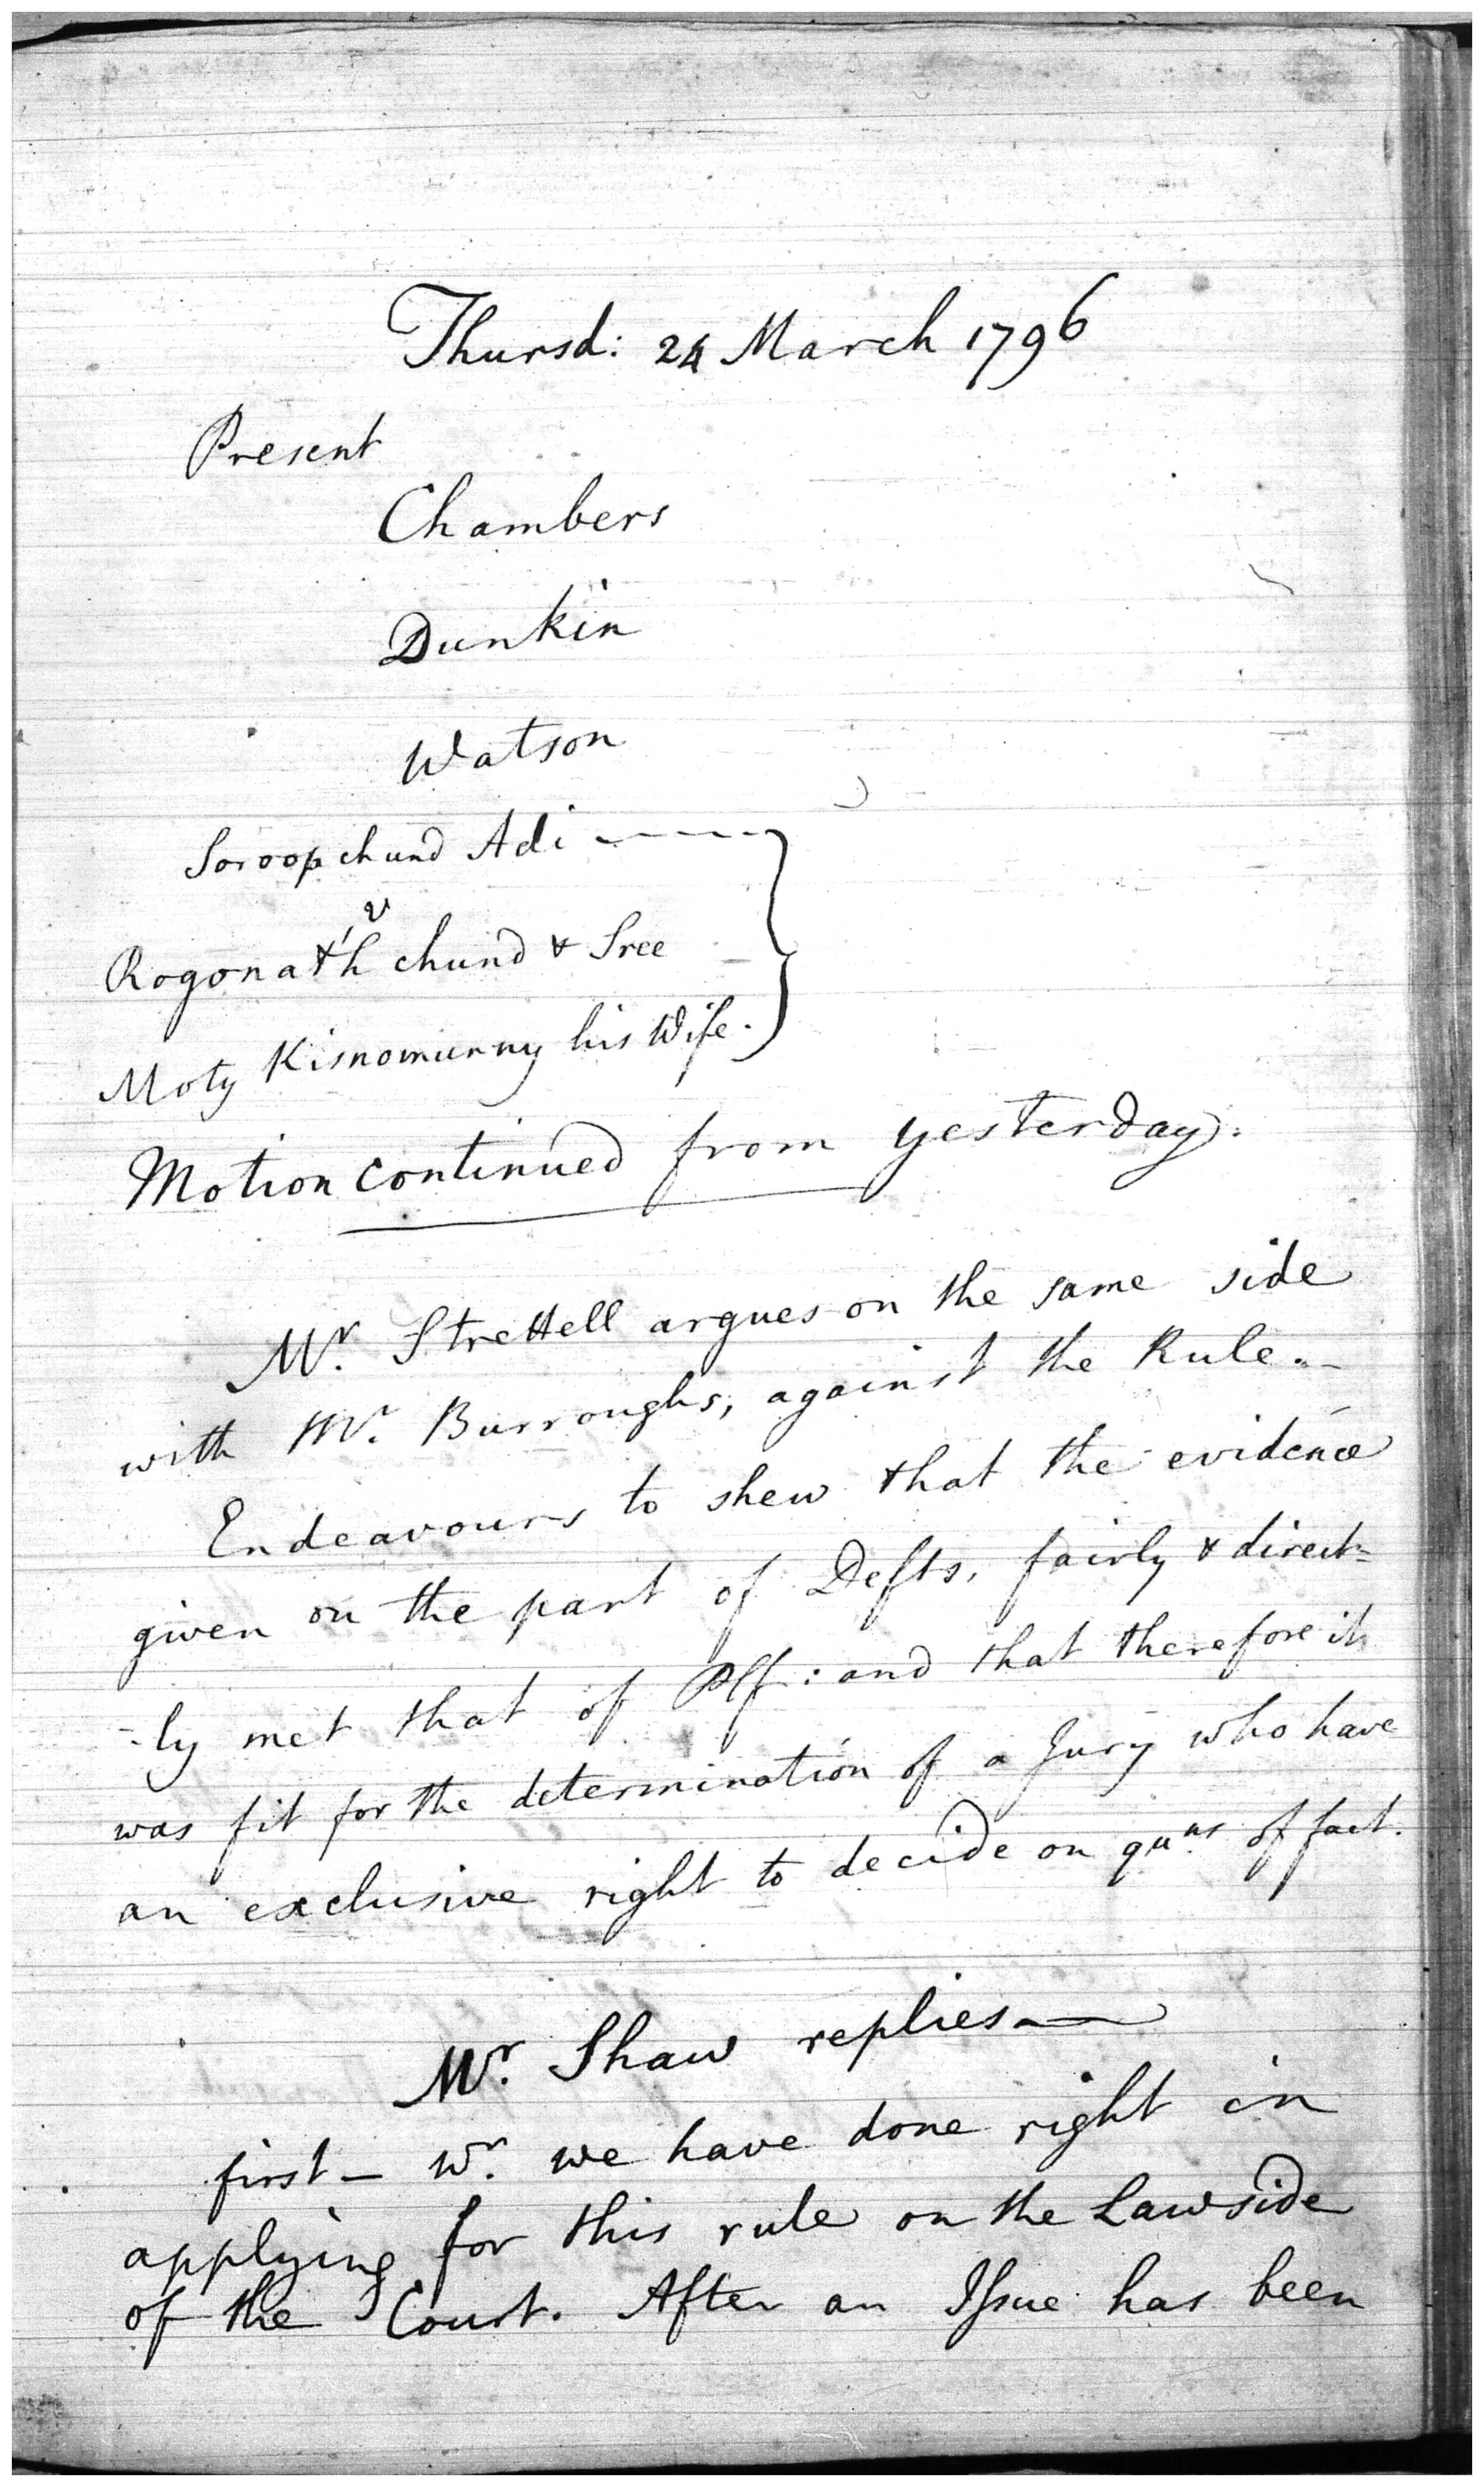 Thursd: 24 March 1796
Present
Chambers
Dunkin
Watson
Soroopchund Adi ----
v
Rogonath chund & Sree
Moty Kisnomunny his Wife.
Motion continued from yesterday.
Mr. Strettell argues on the same side
with Mr. Burroughs, against the Rule.-
Endeavours to shew that the evidence
given on the part of Defts, fairly & direct=
-ly met that of Plf: and that therefore it
was fit for the determination of a Jury who have
an exclusive right to decide on qu.ns of fact.
Mr. Shaw replies—
first— wr. we have done right in
applying for this rule on the Lawside
of the Court. After an Issue has been